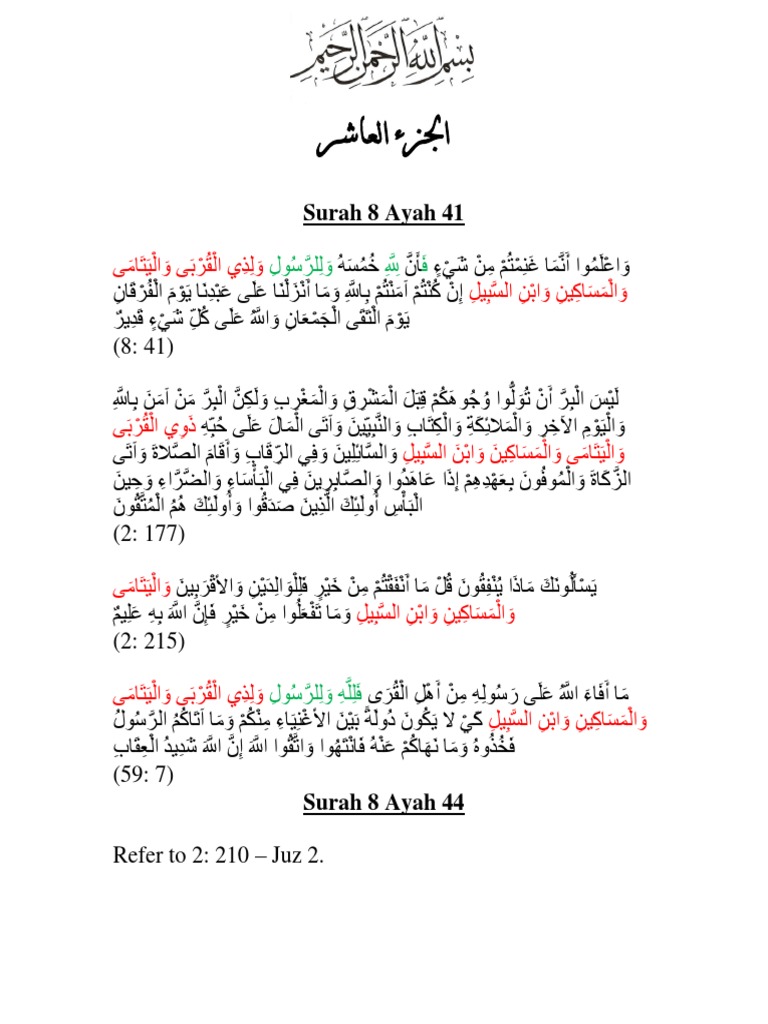 بِسْمِ اللَّهِ الرَّحْمَنِ الرَّحِيمِ
الجزء العاشر
Surah 8 Ayah 41
وَاعْلَمُوا أَنَّمَا غَنِمْتُمْ مِنْ شَيْءٍ فَأَنَّ لِلَّهِ خُمُسَهُ وَلِلرَّسُولِ وَلِذِي الْقُرْبَى وَالْيَتَامَى
وَالْمَسَاكِينِ وَابْنِ السَّبِيلِ إِنْ كُنْتُمْ آمَنْتُمْ بِاللَّهِ وَمَا أَنْزَلْنَا عَلَى عَبْدِنَا يَوْمَ الْفُرْقَانِ
يَوْمَ الْتَقَى الْجَمْعَانِ وَاللَّهُ عَلَى كُلِّ شَيْءٍ قَدِيرٌ
(8: 41)
لَيْسَ الْبِرَّ أَنْ تُوَلُّوا وُجُوهَكُمْ قِبَلَ الْمَشْرِقِ وَالْمَغْرِبِ وَلَكِنَّ الْبِرَّ مَنْ آمَنَ بِاللَّهِ
وَالْيَوْمِ الآخِرِ وَالْمَلائِكَةِ وَالْكِتَابِ وَالنَّبِيِّينَ وَآتَى الْمَالَ عَلَى حُبِّهِ ذَوِي الْقُرْبَى
وَالْيَتَامَى وَالْمَسَاكِينَ وَابْنَ السَّبِيلِ وَالسَّائِلِينَ وَفِي الرِّقَابِ وَأَقَامَ الصَّلاةَ وَآتَى
الزَّكَاةَ وَالْمُوفُونَ بِعَهْدِهِمْ إِذَا عَاهَدُوا وَالصَّابِرِينَ فِي الْبَأْسَاءِ وَالضَّرَّاءِ وَحِينَ
الْبَأْسِ أُولَئِكَ الَّذِينَ صَدَقُوا وَأُولَئِكَ هُمُ الْمُتَّقُونَ
(2: 177)
يَسْأَلُونَكَ مَاذَا يُنْفِقُونَ قُلْ مَا أَنْفَقْتُمْ مِنْ خَيْرٍ فَلِلْوَالِدَيْنِ وَالأَقْرَبِينَ وَالْيَتَامَى
وَالْمَسَاكِينِ وَابْنِ السَّبِيلِ وَمَا تَفْعَلُوا مِنْ خَيْرٍ فَإِنَّ اللَّهَ بِهِ عَلِيمٌ
(2: 215)
مَا أَفَاءَ اللَّهُ عَلَى رَسُولِهِ مِنْ أَهْلِ الْقُرَى فَلِلَّهِ وَلِلرَّسُولِ وَلِذِي الْقُرْبَى وَالْيَتَامَى
وَالْمَسَاكِينِ وَابْنِ السَّبِيلِ كَيْ لا يَكُونَ دُولَةً بَيْنَ الأَغْنِيَاءِ مِنْكُمْ وَمَا آتَاكُمُ الرَّسُولُ
فَخُذُوهُ وَمَا نَهَاكُمْ عَنْهُ فَانْتَهُوا وَاتَّقُوا اللَّهَ إِنَّ اللَّهَ شَدِيدُ الْعِقَابِ
(59: 7)
Surah 8 Ayah 44
Refer to 2: 210 – Juz 2.